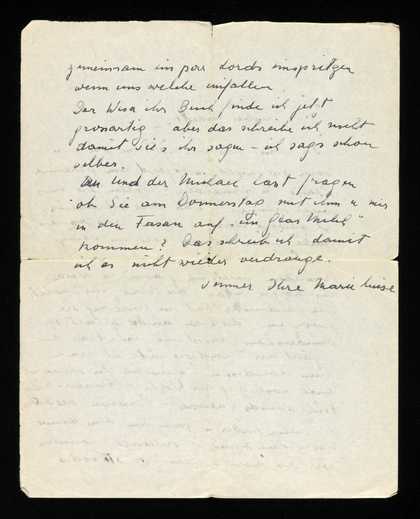 gemeinsam ein paar Lords einspritzen
wenn uns welche einfallen.
Der Wisa ihr Buch finde ich jetzt
grossartig aber das schreibe ich nicht
damit Sie's ihr sagen – ich sags schon
selber.
Und der Michael lässt fragen
ob Sie am Donnerstag mit ihm u mir
in den Fasan auf "ein Glas Milch"
kommen? Das schreib ich damit
ich es nicht wieder verdränge.
immer Ihre Marie Luise